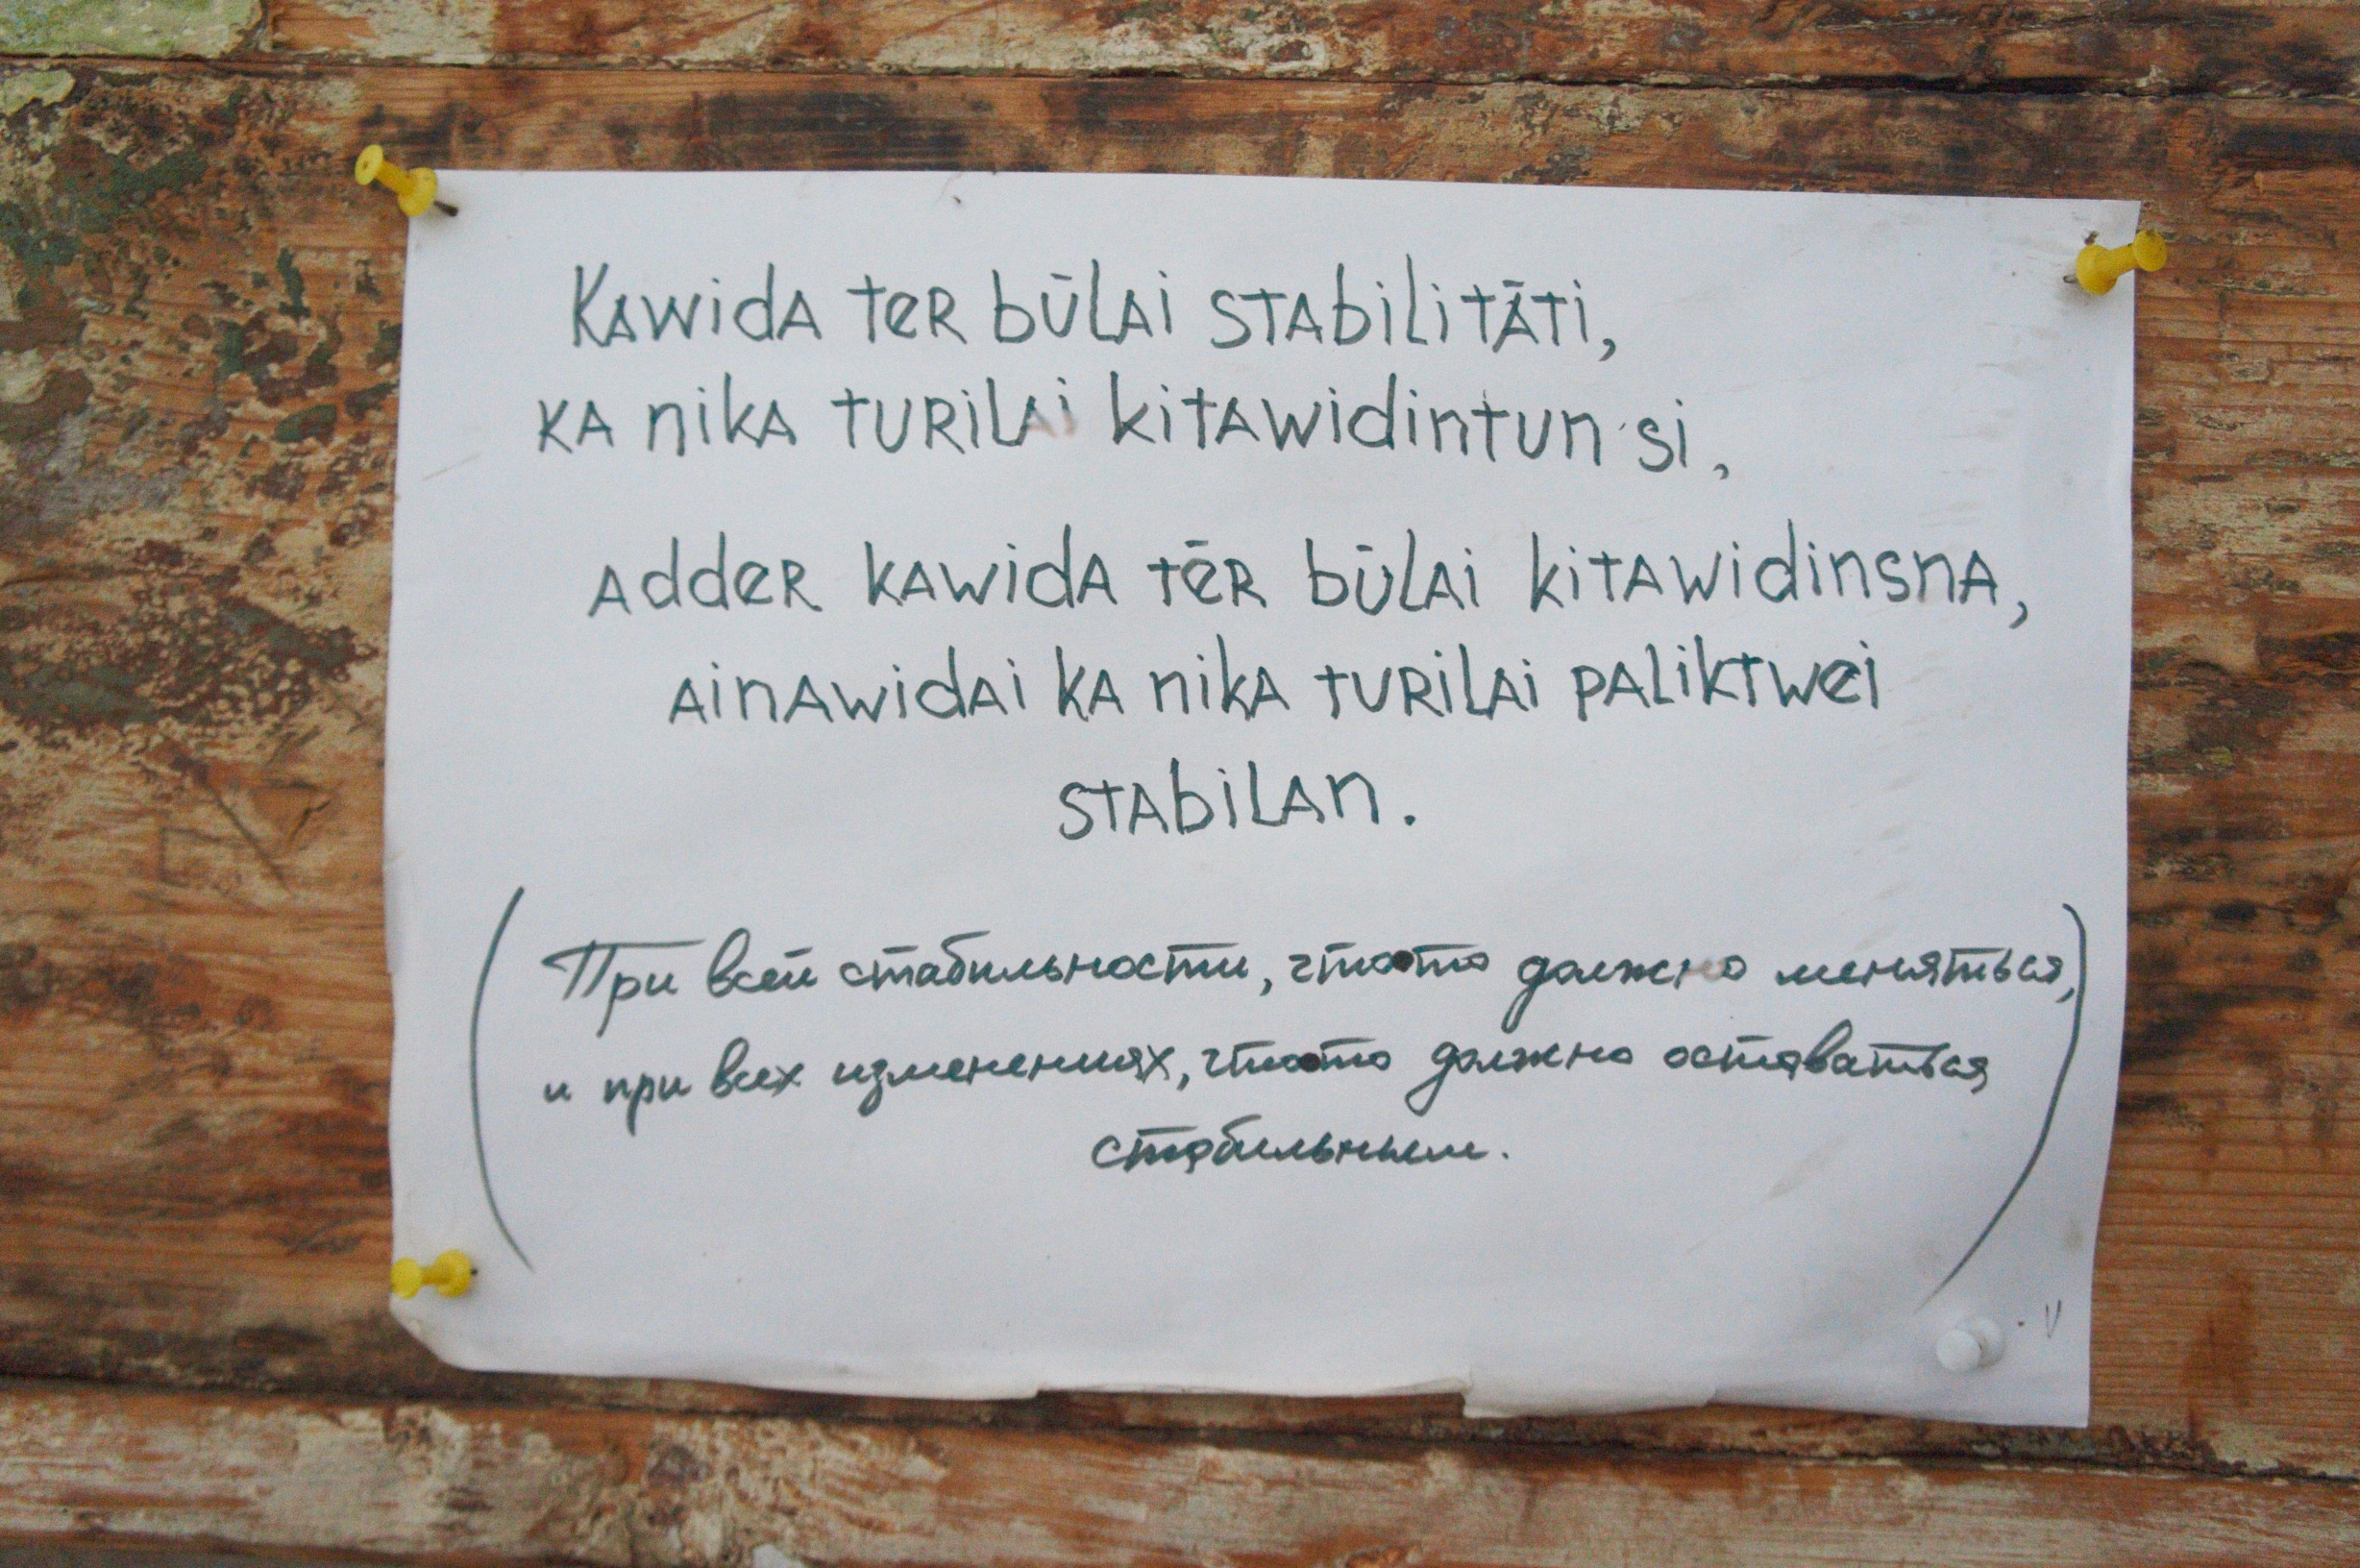 Kawida ter būlai stabilitāti,
ka nika turilai kitawidintun si,
adder kawida tēr būlai kitawidinsna,
ainawidai ka nika turilai paliktwei
stabilan.
(При всей стабильности, что-то должно меняться,
и при всех изменениях, что-то должно оставаться
стабильным.)